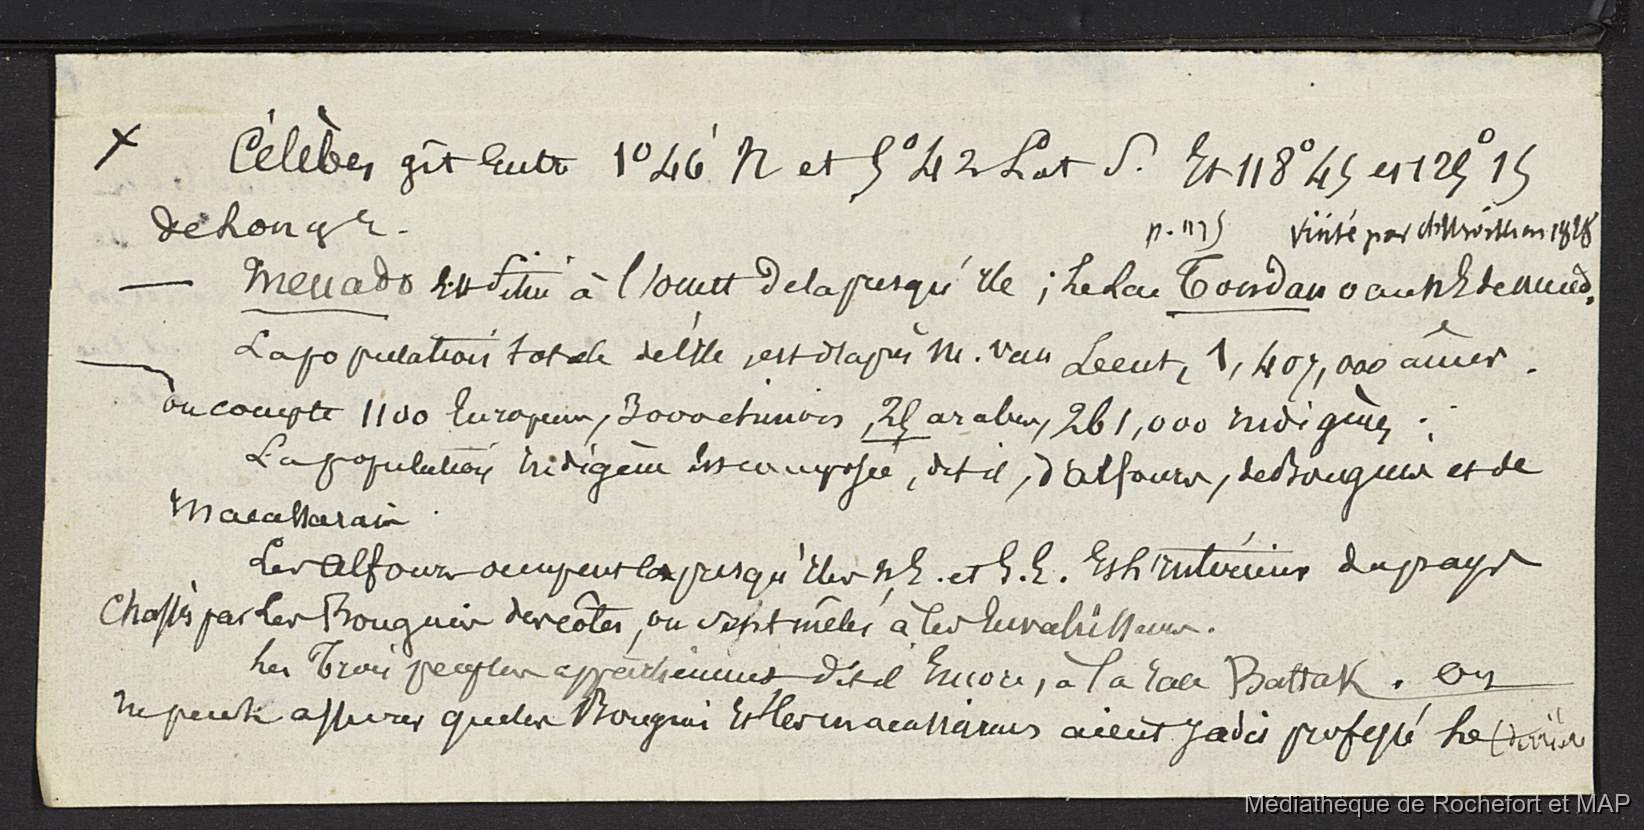 x Célèbes gît entre 1° 46' N et 5° 42 Lat S. Et 118° 45 et 125° 15
de Longr.
p. 115 visité par 1828
— Menado est situé à l'ouest de la presqu'ile ; le lac Tondano au NE de
La population totale de l'Ile, est d'après M. van Leent, 1,407,000 âmes.
on compte 1100 Européens, 3000 chinois, 25 arabes, 261,000 indigènes.
La population indigène est composée, dit il, d'alfours, de Bouguis et de
Macassarais
Les alfours occupent la presqu'iles NE. et S.E. Et l'intérieur du pays
Chassés par les Bouguis des côtes, ou sont mêlés à les Envahisseurs.
les Trois peuples appartiennent dit il Encore, à la race Battak. On
ne peut assurer que les Bouguis Et les macassarais aient jadis professé le
Médiathèque de Rochefort et MAP